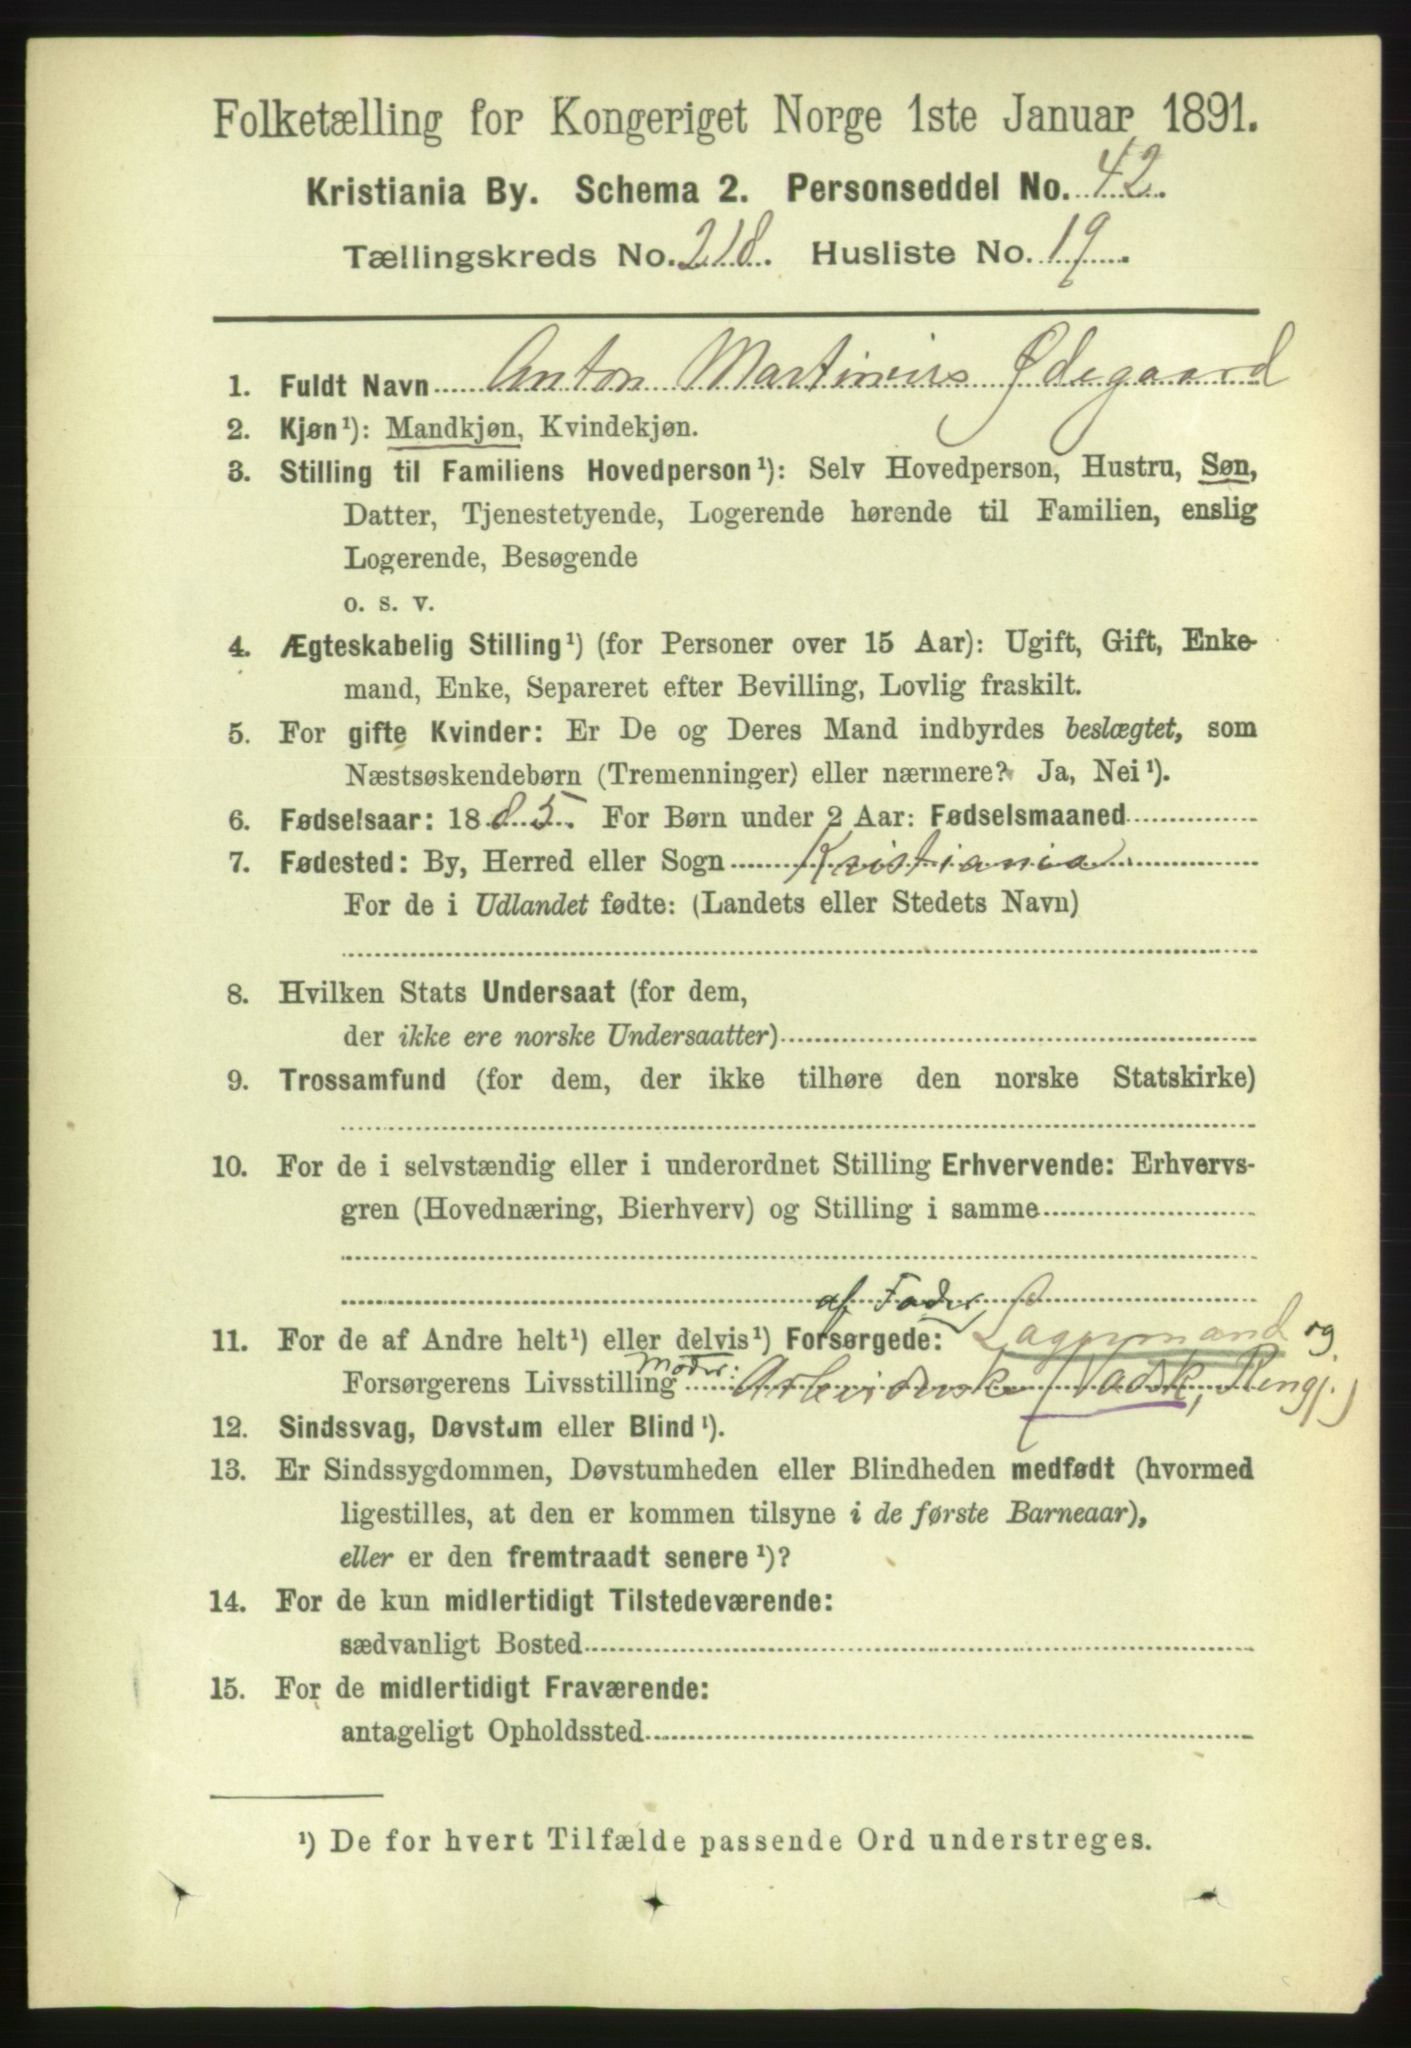 Folketælling for Kongeriget Norge 1ste Januar 1891.
Kristiania By. Schema 2. Personseddel No. 42.
Tællingskreds No. 218. Husliste No. 19.
1. Fuldt Navn Anton Martinius Ødegaard
2. Kjøn¹): Mandkjøn, Kvindekjøn.
3. Stilling til Familiens Hovedperson¹): Selv Hovedperson, Hustru, Søn,
Datter, Tjenestetyende, Logerende hørende til Familien, enslig
Logerende, Besøgende
o. s. v.
4. Ægteskabelig Stilling¹) (for Personer over 15 Aar): Ugift, Gift, Enke-
mand, Enke, Separeret efter Bevilling, Lovlig fraskilt.
5. For gifte Kvinder: Er De og Deres Mand indbyrdes beslægtet, som
Næstsøskendebørn (Tremenninger) eller nærmere? Ja, Nei¹).
6. Fødselsaar: 1885. For Børn under 2 Aar: Fødselsmaaned
7. Fødested: By, Herred eller Sogn Kristiania
For de i Udlandet fødte: (Landets eller Stedets Navn)
8. Hvilken Stats Undersaat (for dem,
der ikke ere norske Undersaatter)
9. Trossamfund (for dem, der ikke tilhøre den norske Statskirke)
10. For de i selvstændig eller i underordnet Stilling Erhvervende: Erhvervs-
gren (Hovednæring, Bierhverv) og Stilling i samme
af Fader
11. For de af Andre helt¹) eller delvis¹) Forsørgede: Lagermand og
Forsørgerens Livsstilling Moder: Arbeiderske (Vadsk, Rengj.)
12. Sindssvag, Døvstum eller Blind¹).
13. Er Sindssygdommen, Døvstumheden eller Blindheden medfødt (hvormed
ligestilles, at den er kommen tilsyne i de første Barneaar),
eller er den fremtraadt senere¹)?
14. For de kun midlertidigt Tilstedeværende:
sædvanligt Bosted
15. For de midlertidigt Fraværende:
antageligt Opholdssted
¹) De for hvert Tilfælde passende Ord understreges.